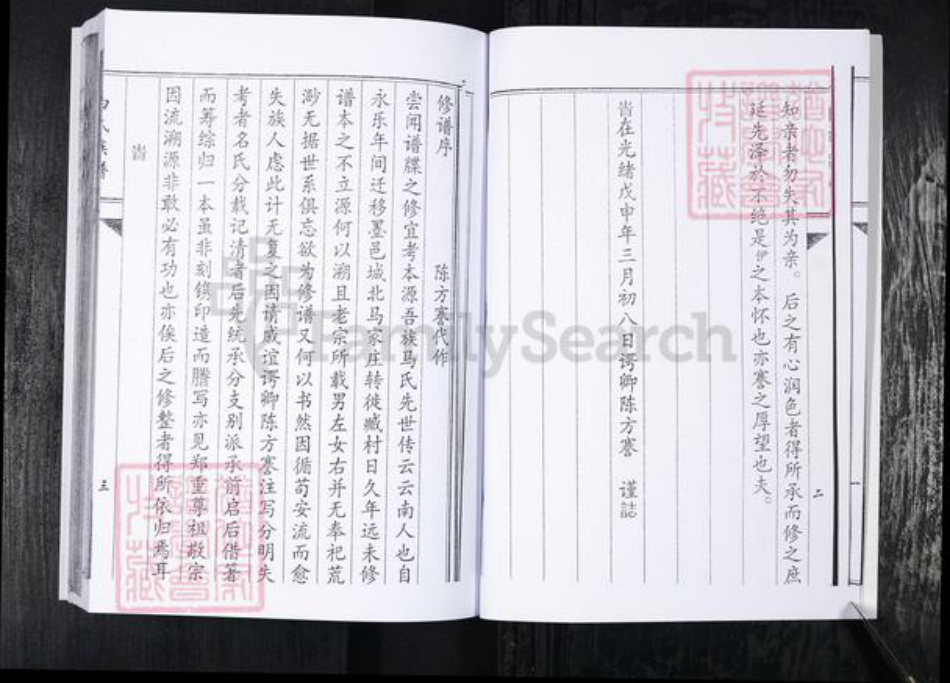 知亲者勿失其为亲。后之有心润色者得所承而修之庶
延先泽於不绝是伊之本怀也亦謇之厚望也夫。
旹在光緒戊申年三月初八日谔卿陈方謇 谨誌
二
修谱序 陈方謇代作
尝闻谱牒之修宜考本源吾族马氏先世传云云南人也自
永乐年间迁移墨邑城北马家庄转徙臧村日久年远未修
谱本之不立源何以溯且老宗所载男左女右并无奉祀荒
渺无据世系俱忘欲为修谱又何以书然因循苟安流而愈
失族人虑此计无复之因请戚谊谔卿陈方謇注写分明失
考者名氏分载记清者后先统承分支别派承前启后借箸
而筹综归一本虽非刻镌印造而謄写亦见郑重尊祖敬宗
因流溯源非敢必有功也亦俟后之修整者得所依归焉耳
旹
三
氏族谱
FamilySearch